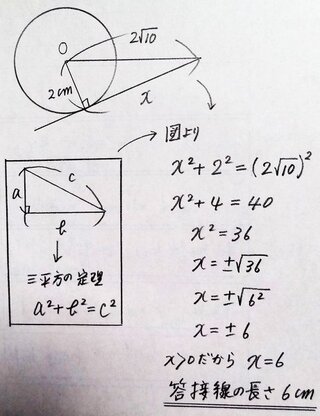 O
2√10
2cm
x
図より
a
c
b
三平方の定理
a²+b²=c²
x²+2²=(2√10)²
x²+4=40
x²=36
x=±√36
x=±√6²
x=±6
x>0だから x=6
答 接線の長さ 6cm